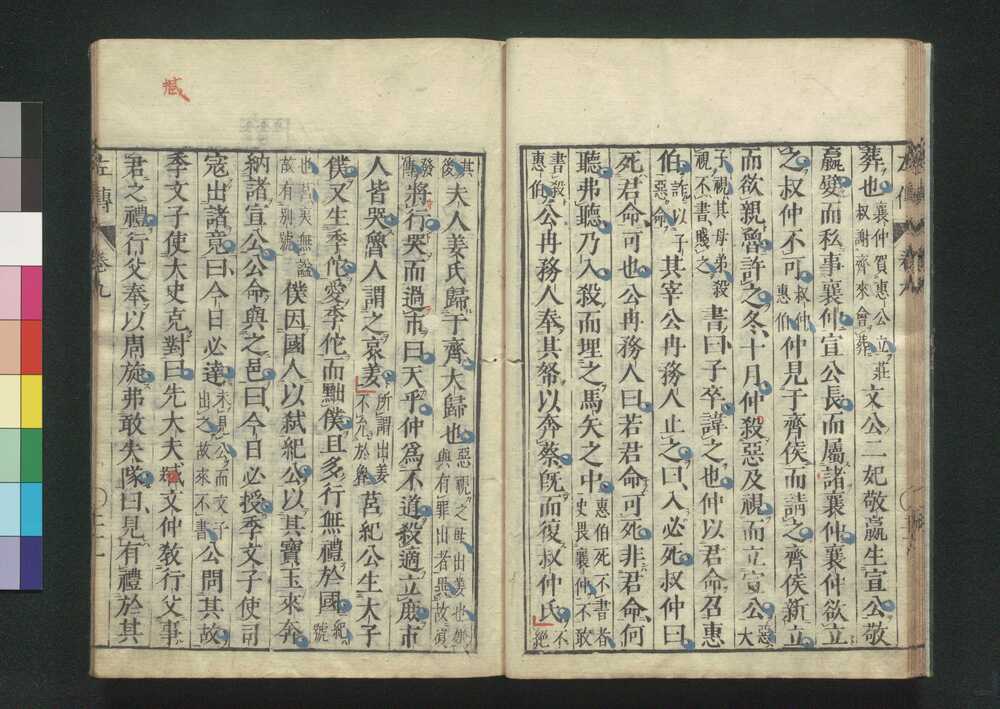 左傳 卷九
葬也襄仲賀惠公立莊叔謝齊來會葬文公二妃敬嬴生宣公敬
嬴嬖而私事襄仲宣公長而屬諸襄仲襄仲欲立
之叔仲不可叔仲惠伯仲見于齊侯而請之齊侯新立
而欲親魯許之冬十月仲殺惡及視而立宣公惡大
子視其母弟殺視不書賤之書曰子卒諱之也仲以君命召惠
伯詐以子惡命其宰公冉務人止之曰入必死叔仲曰
死君命可也公冉務人曰若君命可死非君命何
聽弗聽乃入殺而埋之馬矢之中惠伯死不書者史畏襄仲不敢
書殺惠伯公冉務人奉其帑以奔蔡旣而復叔仲氏不絶
其後夫人姜氏歸于齊大歸也惡視之母出姜也嫌與有罪出者異故復
發傳將行哭而過市曰天乎仲爲不道殺適立庶市
人皆哭魯人謂之哀姜所謂出姜不允於魯莒紀公生大子
僕又生季佗愛季佗而黜僕且多行無禮於國紀號
也莒夷無謚故有別號僕因國人以弑紀公以其寶玉來奔
納諸宣公公命與之邑曰今日必授季文子使司
寇出諸竟曰今日必達未見公而文子出之故來不書公問其故
季文子使大史克對曰先大夫臧文仲敎行父事
君之禮行父奉以周旋弗敢失隊曰見有禮於其
左傳 卷九